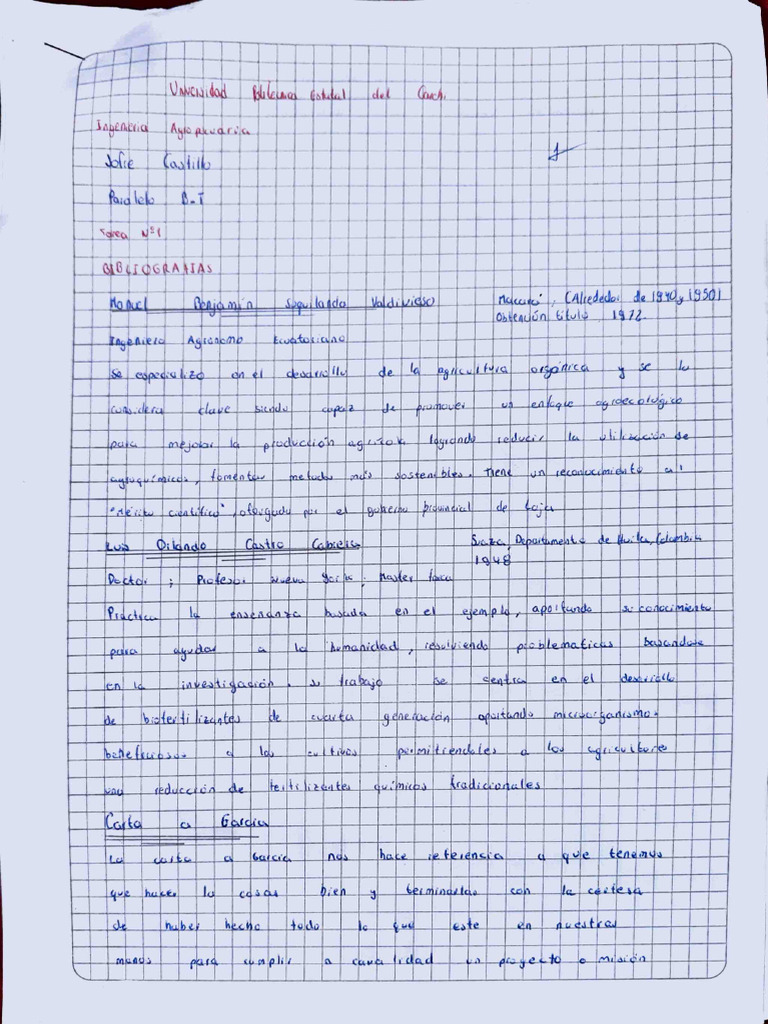 Universidad Politecnica Estatal del Carchi
Ingenieria Agropecuaria
Jofie Castillo
Paralelo B-T
Tarea Nº1
BIBLIOGRAFIAS
Manuel Benjamin Suquilanda Valdivieso Macará, (Alrededor de 1940 y 1950)
Obtención titulo 1972.
Ingeniero Agronomo Ecuatoriano
se especializo en el desarrollo de la agricultura orgánica y se lo
considera clave siendo capaz de promover un enfoque agroecológico
para mejorar la producción agricola logrando reducir la utilización de
agroquímicos, fomentar metodos más sostenibles. Tiene un reconocimiento al
"Mérito científico", otorgado por el gobierno provincial de Loja
Luis Orlando Castro Cabrera Suaza, Departamento de Huila, Colombia
1948
Doctor ; Profesor Nueva York ; Master
Practica la enseñanza basada en el ejemplo, aportando su conocimiento
para ayudar a la humanidad, resolviendo problematicas basandose
en la investigación. su trabajo se centra en el desarrollo
de biofertilizantes de cuarta generación aportando microorganismos
beneficiosos a los cultivos permitiendoles a los agricultores
una reducción de fertilizantes químicos tradicionales
Carta a Garcia
La carta a Garcia nos hace referencia a que tenemos
que hacer la cosas bien y terminarlas con la certesa
de haber hecho todo lo que este en nuestras
manos para cumplir a cavalidad un proyecto o misión